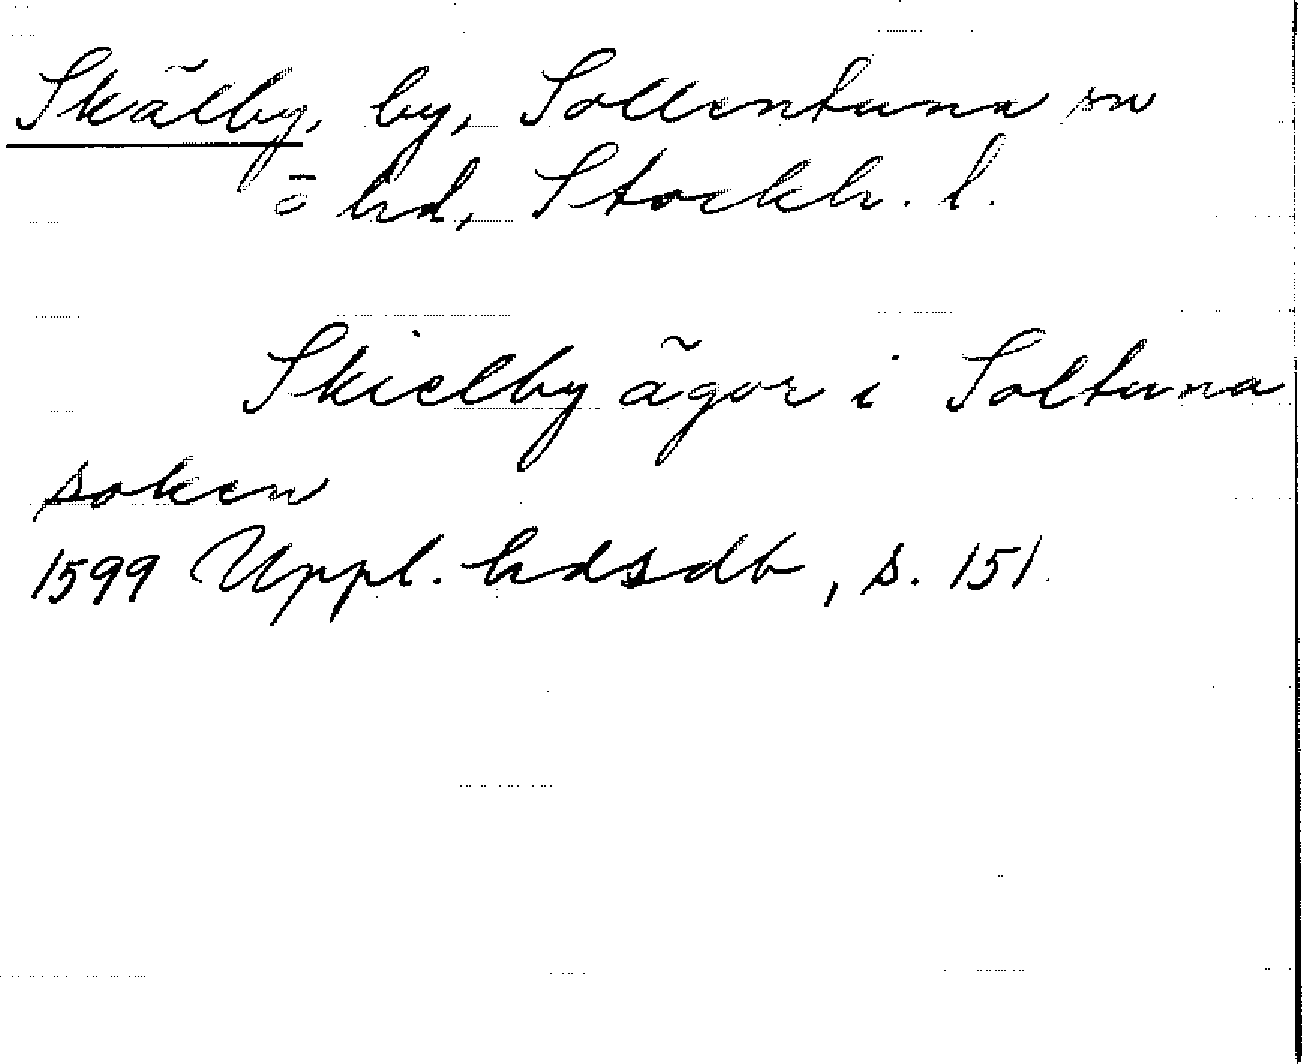 Skälby, by, Sollentuna sn
o hd, Stockh. l.
Skielby ägor i Soltuna
soken
1599 Uppl. hdsdb, s. 151.